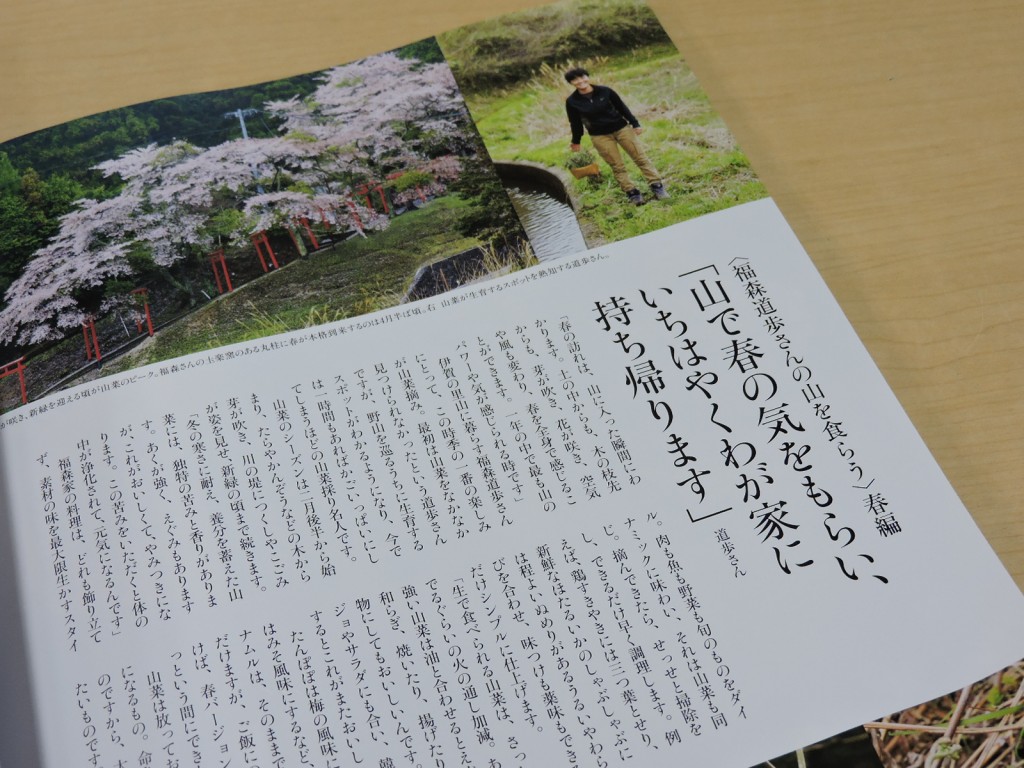 〈福森道歩さんの山を食らう〉春編
「山で春の気をもらい、
いちはやくわが家に
持ち帰ります」
道歩さん
が咲き、新緑を迎える頃が山菜のピーク。福森さんの土楽窯のある丸柱に春が本格到来するのは4月半ば頃。右 山菜が生育するスポットを熟知する道歩さん。
「春の訪れは、山に入った瞬間にわ
かります。土の中からも、木の枝先
からも、芽が吹き、花が咲き、空気
や風も変わり、春を全身で感じるこ
とができます。一年の中で最も山の
パワーや気が感じられる時です」
伊賀の里山に暮らす福森道歩さん
にとって、この時季の一番の楽しみ
が山菜摘み。最初は山菜をなかなか
見つけられなかったという道歩さん
ですが、野山を巡るうちに生育する
スポットがわかるようになり、今で
は一時間もあればかごいっぱいにし
てしまうほどの山菜採り名人です。
山菜のシーズンは二月後半から始
まり、たらやかんぞうなどの木から
芽が吹き、川の堤につくしやこごみ
が姿を見せ、新緑の頃まで続きます。
「冬の寒さに耐え、養分を蓄えた山
菜には、独特の苦みと香りがありま
す。あくが強く、えぐみもあります
が、これがおいしくて、やみつきにな
ります。この苦みをいただくと体の
中が浄化されて、元気になるんです」
福森家の料理は、どれも飾り立て
ず、素材の味を最大限生かすスタイ
ル。肉も魚も野菜も旬のものをダイ
ナミックに味わい、それは山菜も同
じ。摘んできたら、せっせと掃除を
し、できるだけ早く調理します。例
えば、鶏すきやきには三つ葉とせり、
新鮮なほたるいかのしゃぶしゃぶに
は程よいぬめりがあるうるいやわら
びを合わせ、味つけも薬味もでき
だけシンプルに仕上げます。
「生で食べられる山菜は、さっ
でるぐらいの火の通し加減。あ
強い山菜は油と合わせるとえ
和らぎ、焼いたり、揚げたり
物にしてもおいしいんです。
ジョやサラダにも合い、韓
するとこれがまたおいし
たんぽぽは梅の風味に
はみそ風味にするなど、
ナムルは、そのままで
だけますが、ご飯に
けば、春バージョン
っという間にでき
山菜は放ってお
になるもの。命
のですから、大
たいものです